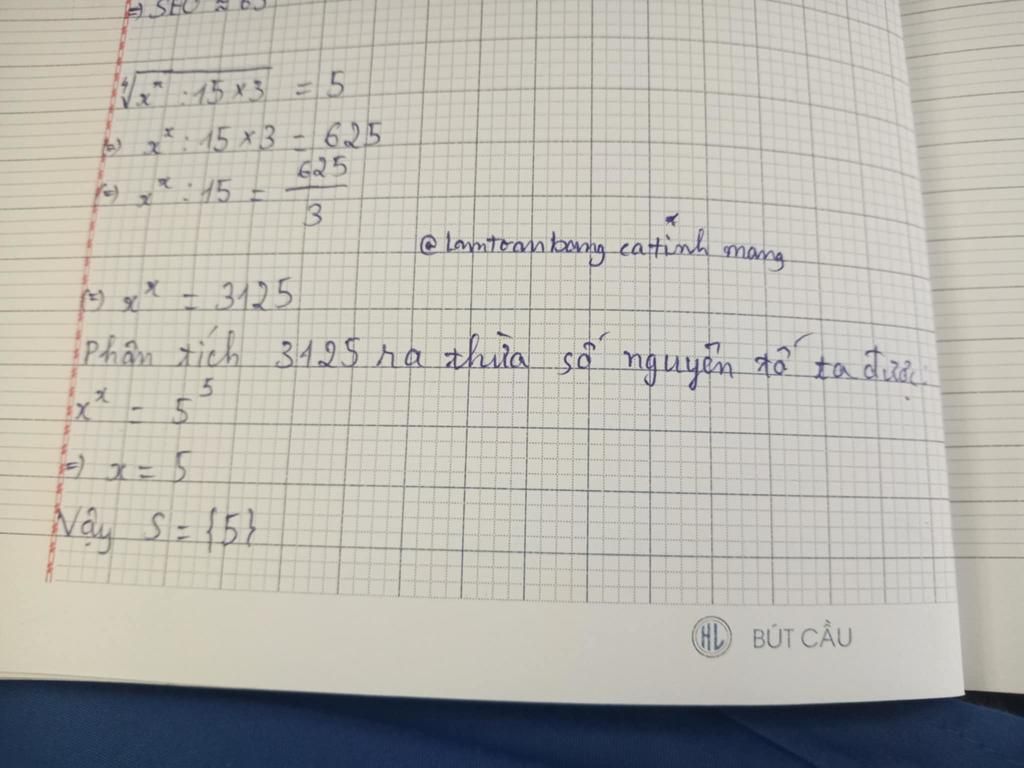 ∜(x^x : 15 × 3) = 5
⇔ x^x : 15 × 3 = 625
⇔ x^x : 15 = 625/3
@lamtoanbang catinh mang
⇔ x^x = 3125
Phân tích 3125 ra thừa số nguyên tố ta được:
x^x = 5^5
⇒ x = 5
Vậy S = {5}
HL BÚT CẦU